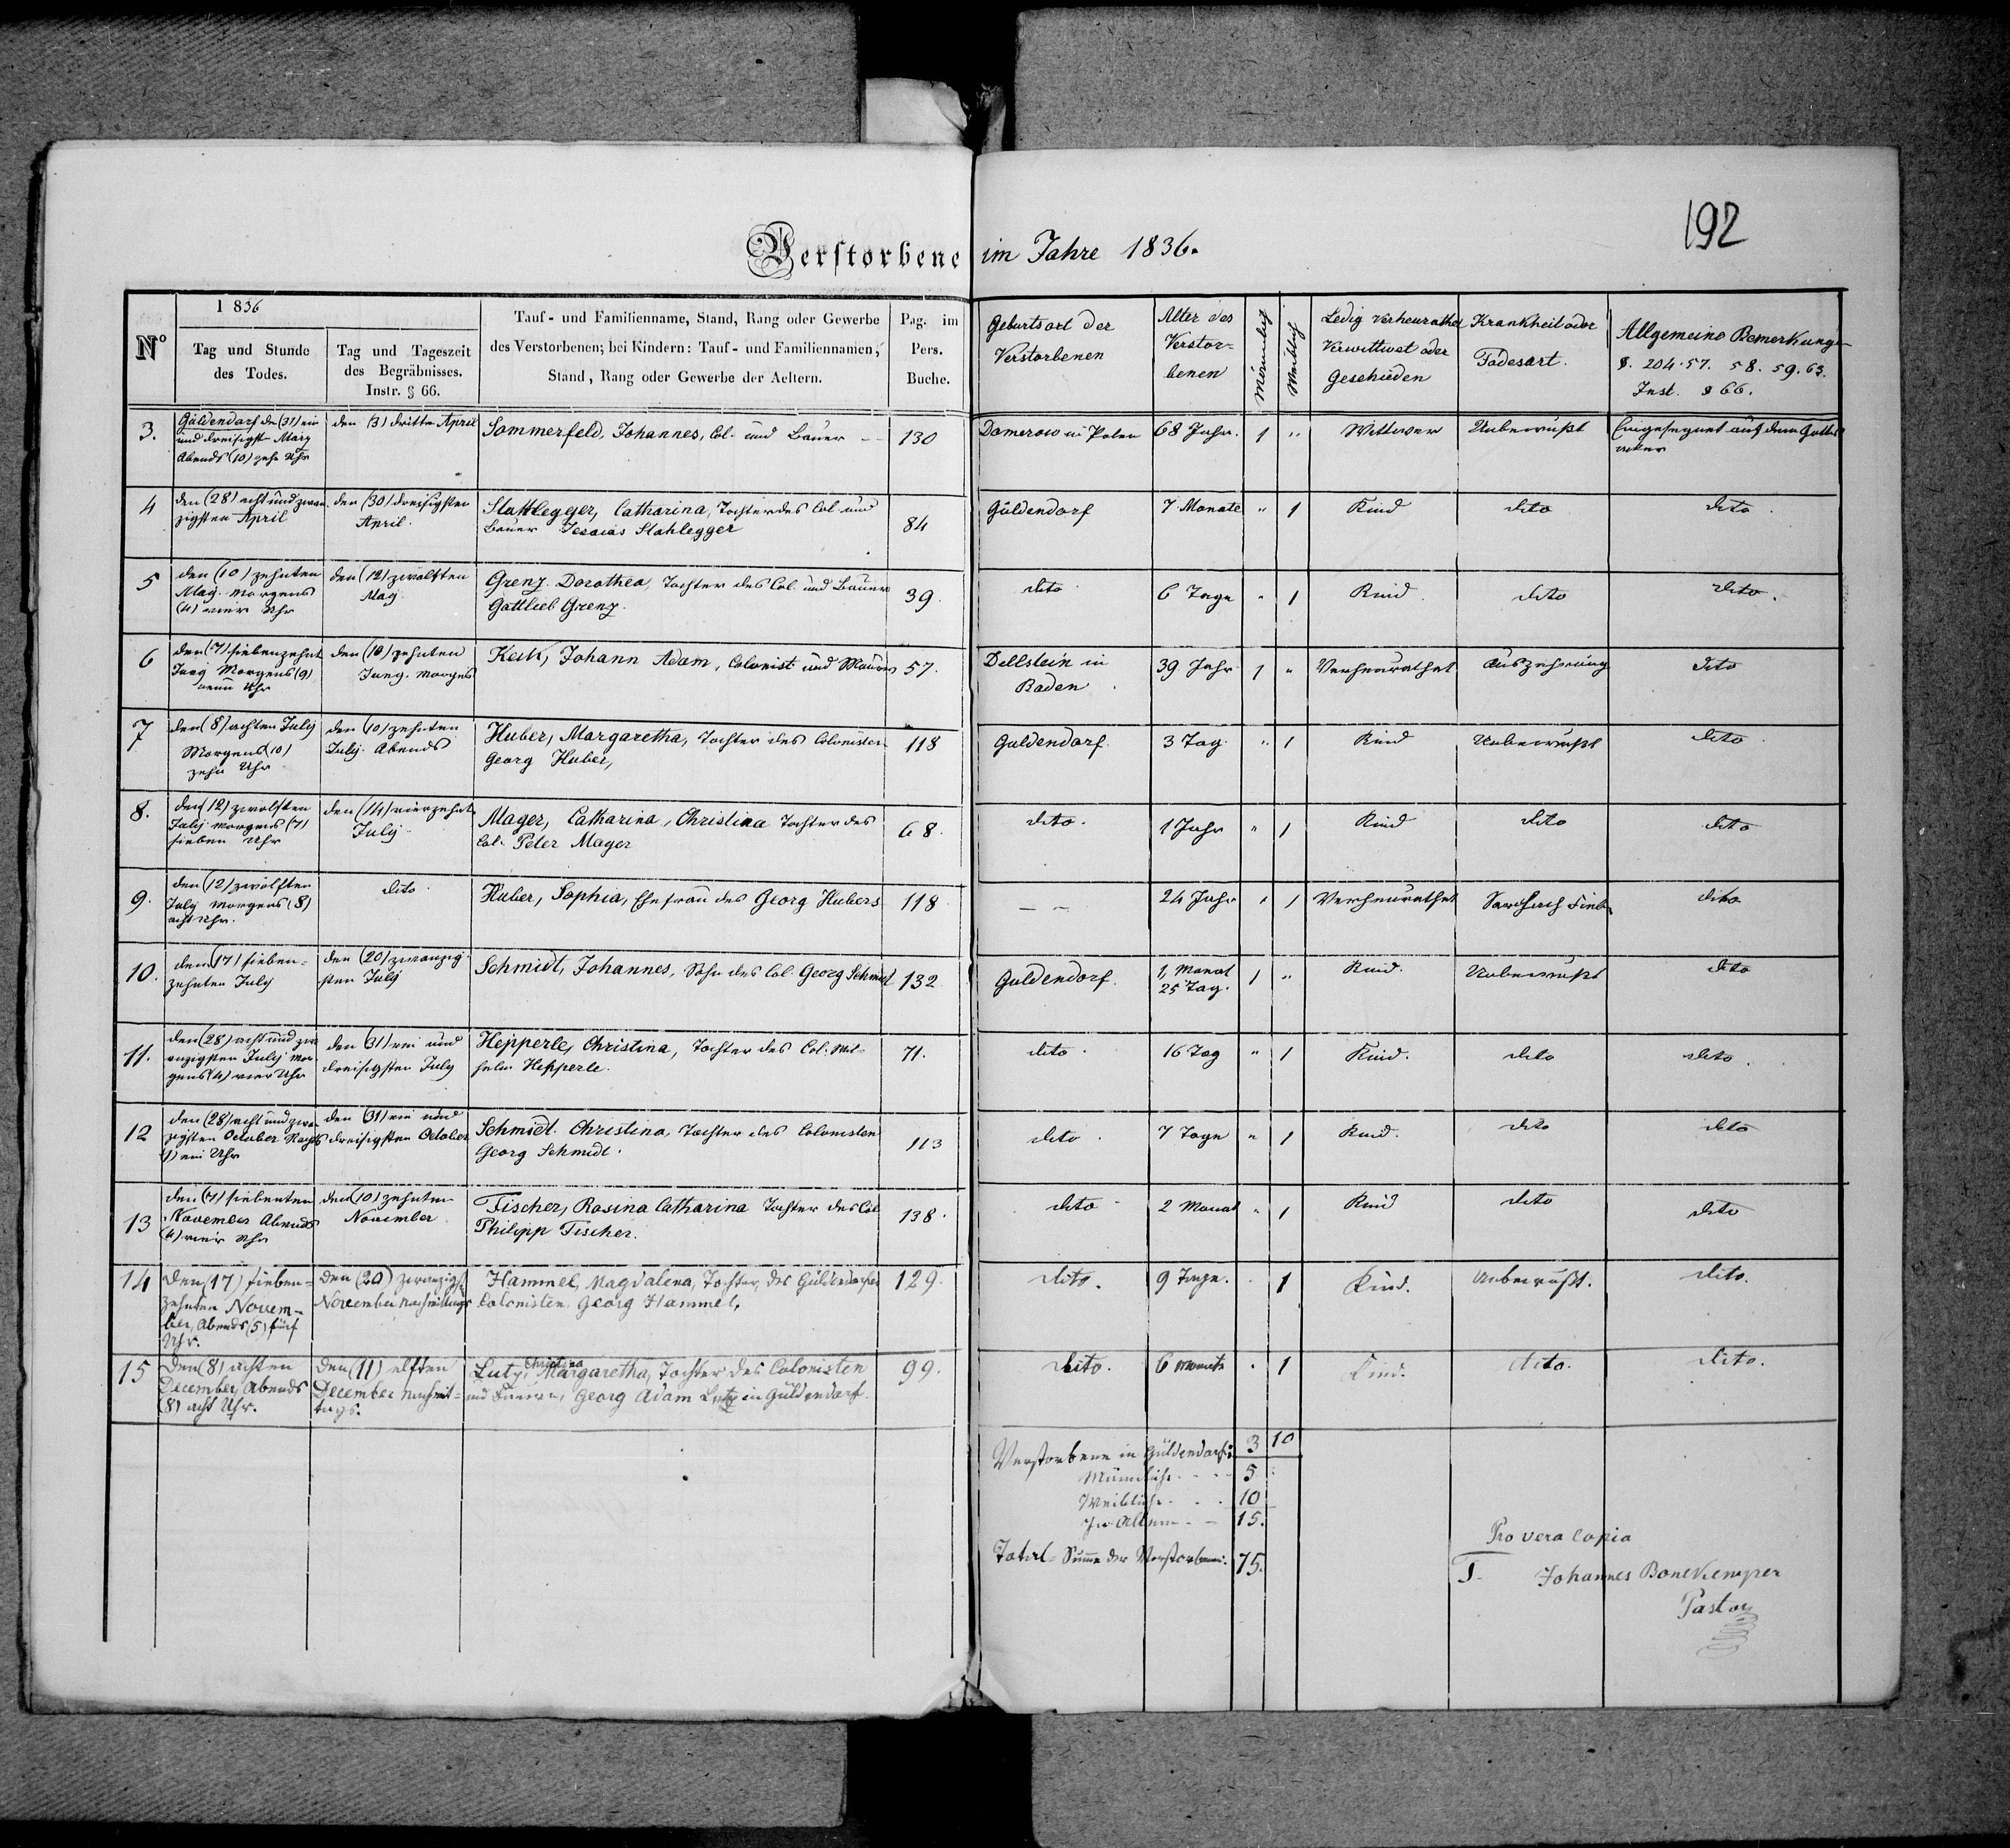 192
Verstorbene im Jahre 1836.
1836
No
Tag und Stunde
des Todes.
Tag und Tageszeit
des Begräbnisses.
Instr. § 66.
Tauf- und Familienname, Stand, Rang oder Gewerbe
des Verstorbenen; bei Kindern: Tauf- und Familiennamen,
Stand, Rang oder Gewerbe der Aeltern.
Pag. im
Pers.
Buche.
Geburtsort der
Verstorbenen
Alter des
Verstor-
benen
Männlich
Weiblich
Ledig Verheurathet
Verwittwet oder
Geschieden
Krankheit oder
Todesart.
Allgemeine Bemerkunge-
§. 204. 57. 58. 59. 63.
Inst. § 66.
3.
Güldendorf den (31) ein
und dreisigst Marz
Abends (10) zehn Uhr
den (3) dritte April
Sommerfeld, Johannes, Col. und Bauer
130
Domerow in Polen
68 Jahr.
1
"
Wittwer
Unbewußt
Eingesegnet auf dem Gottes
acker
4
den (28) acht und zwan
zigsten April
den (30) dreisigsten
April.
Stahlegger, Catharina, Tochter des Col und
Bauer Jesaias Stahlegger
84
Güldendorf
7 Monate
"
1
Kind
dito
dito.
5
den (10) zehnten
May. Morgens
(4) vier Uhr
den (12) zwölften
May.
Grenz. Dorothea, Tochter des Col. und Bauer
Gottlieb Grenz.
39.
dito
6 Tage
"
1
Kind.
dito
dito.
6
den (7) siebenzehnt
Juny Morgens (9)
neun Uhr
den (10) zehnten
Juny. morgens
Keck, Johann Adam, Colonist und Maurer
57.
Dellstein in
Baden.
39 Jahr
1
"
Verheurathet
Auszehrung
dito
7
den (8) achten July
Morgens (10)
zehn Uhr
den (10) zehnten
July. Abends
Huber, Margaretha, Tochter des Colonisten
Georg Huber,
118
Guldendorf.
3 Tag.
"
1
Kind
Unbewußt
dito
8.
den (12) zwolften
July morgens (7)
sieben Uhr
den (14) vierzehnt
July
Mager, Catharina, Christina Tochter des
Col. Peter Mager
68.
dito.
1 Jahr
"
1
Kind
dito
dito
9.
den (12) zwölften
July morgens (8)
acht Uhr.
dito
Huber, Sophia, Ehefrau des Georg Hubers
118
— —
24 Jahr
"
1
Verheurathet
dito
10.
den (17) sieben=
zehnten July
den (20) zwanzig
sten July
Schmidt, Johannes, Sohn des Col. Georg Schmidt
132
Guldendorf.
1, Monat
25 Tag.
1
"
Kind.
Unbewußt
dito
11.
den (28) acht und zwa
nzigsten July Mor
gens (4) vier Uhr
den (31) ein und
dreisigsten July
Hepperle, Christina, Tochter des Col. Wil-
helm Hepperle.
71.
dito.
16 Tag
"
1
Kind.
dito
dito.
12
den (28) acht und zwa
zigsten October Nachts
(1) ein Uhr
den (31) ein und
dreisigsten October
Schmidt. Christina, Tochter des Colonisten
Georg Schmidt.
113
dito.
7 Tage
"
1
Kind.
dito
dito
13
den (7) siebenten
November Abends
(4) vier Uhr
den (10) zehnten
November
Fischer, Rosina Catharina Tochter des Col
Philipp Fischer.
138.
dito
2 Monat
"
1
Kind
dito
dito
14
Den (17) sieben=
zehnten Novem-
ber, Abends (5) fünf
Uhr.
Den (20) zwanzigst
November Nachmittags
Hammel, Magdalena, Tochter, des Güldendorfer
Colonisten Georg Hammel,
129.
dito.
9 Tage.
1
Kind.
Unbewußt.
dito.
15
Den (8) achten
December, Abends
(8) acht Uhr.
Den (11) elften
December Nachmit=
tags.
Christina
Lutz, Margaretha, Tochter des Colonisten
und Bauern, Georg Adam Lutz in Güldendorf
99.
dito.
6 Monate
"
1
Kind.
dito.
dito.
Verstorbene in Güldendorf: 3 10
Männliche - - - 5
Weibliche - . . 10
In Allem - - 15.
Total-Summe der Verstorbenen. 75.
Pro vera copia
T. Johannes Bonekemper
Pastor